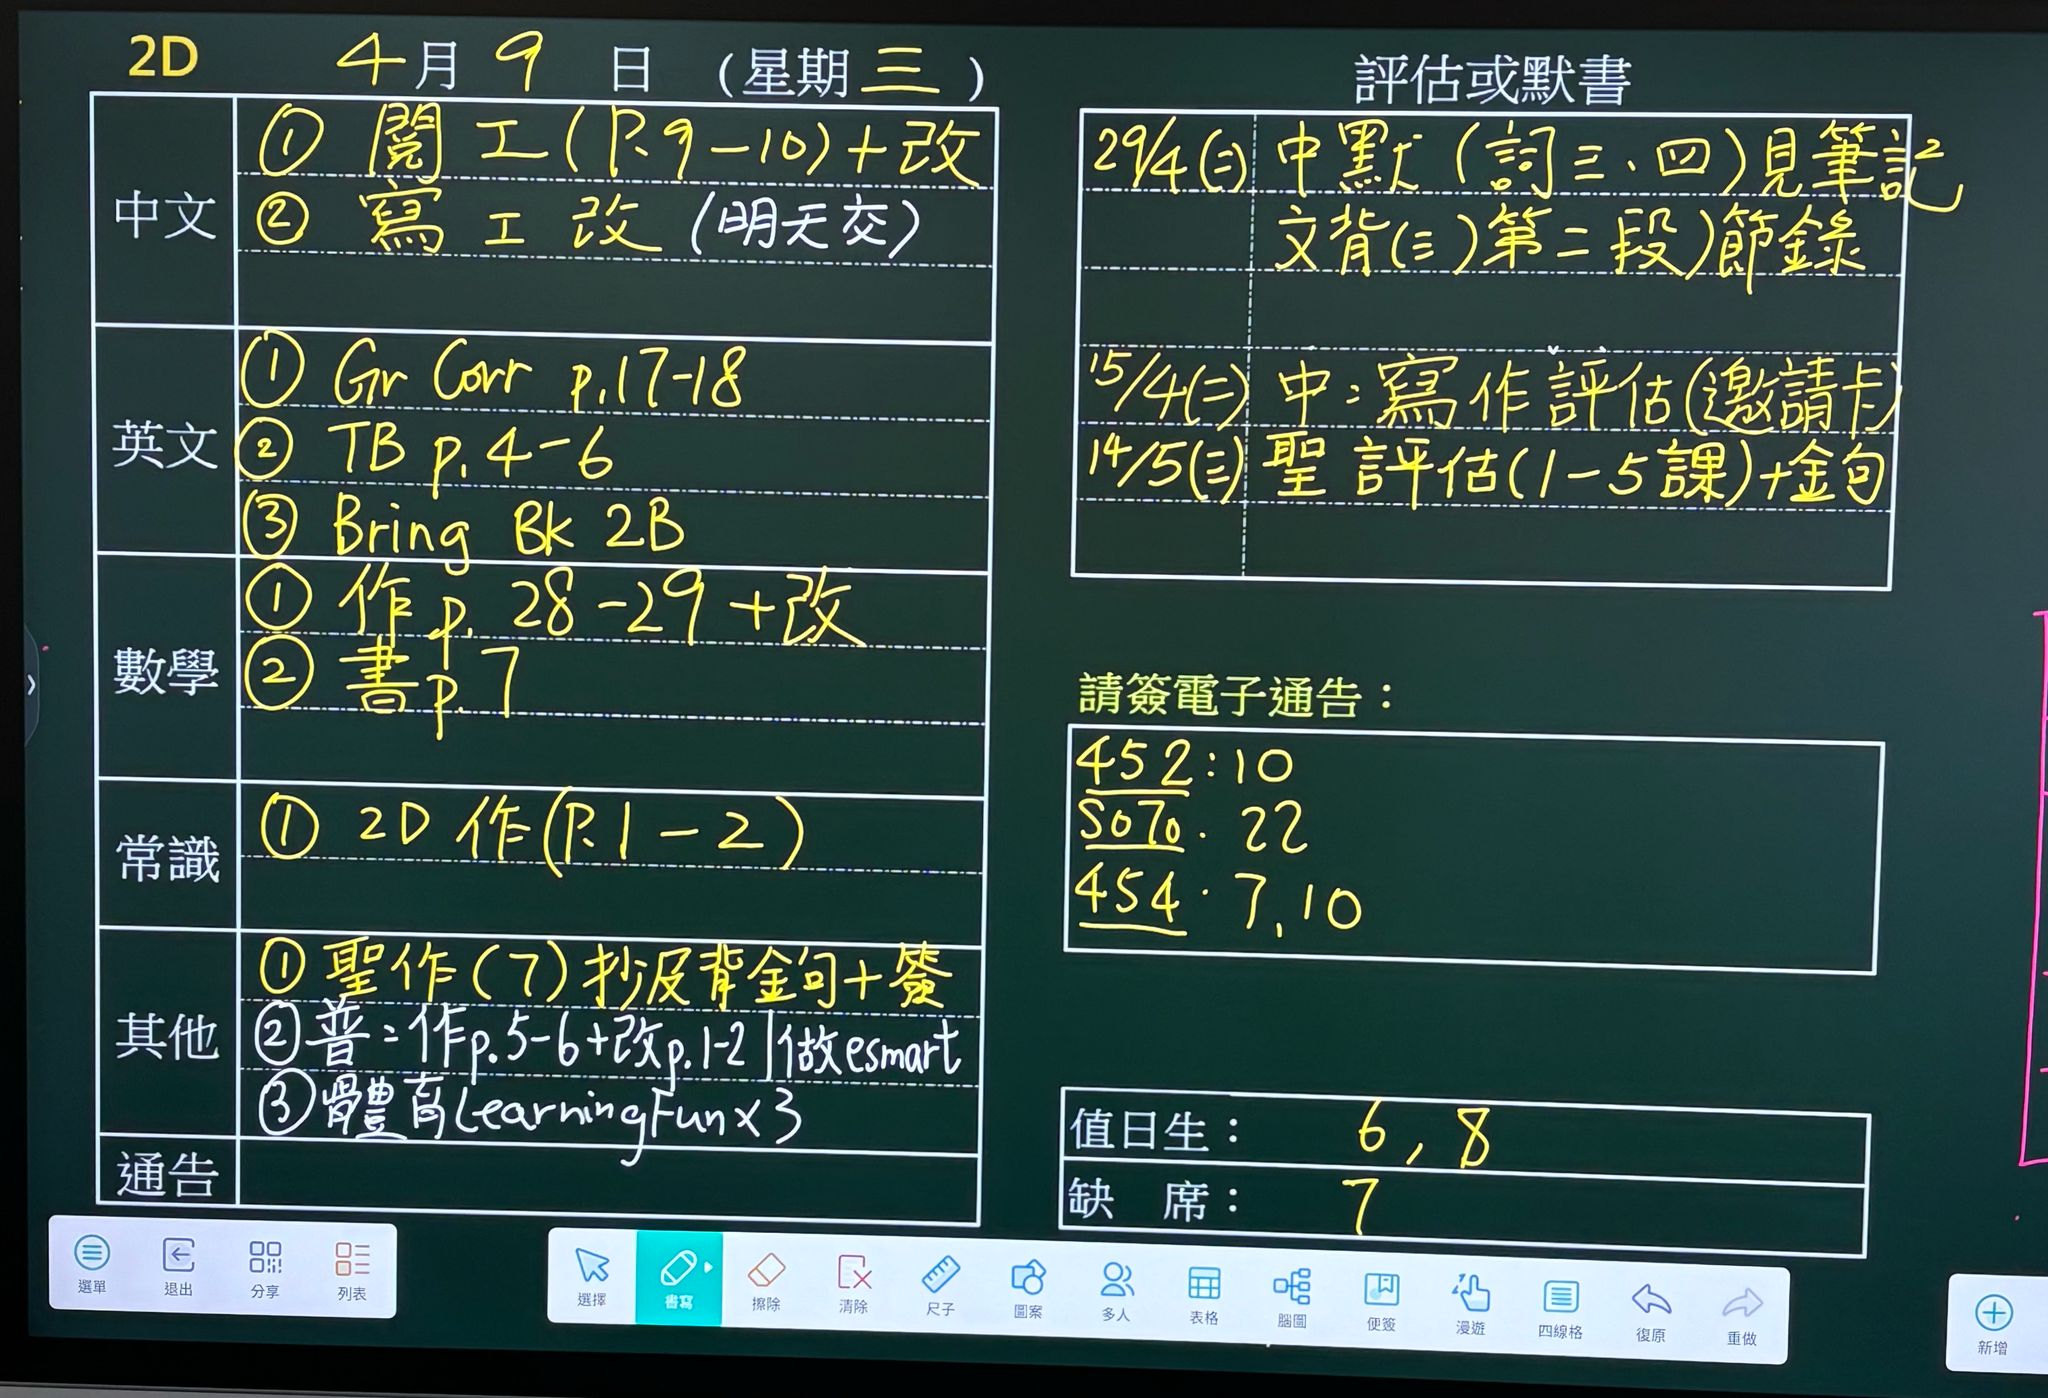 2D 4月9日 (星期三)
中文
① 閱工(P.9-10)+改
② 寫工改(明天交)
英文
① Gr Corr p.17-18
② TB p.4-6
③ Bring Bk 2B
數學
① 作p.28-29+改
② 書p.7
常識
① 2D作(P.1-2)
其他
① 聖作(7)抄及背金句+簽
② 普：作p.5-6+改p.1-2|做esmart
③ 體育LearningFunx3
通告
評估或默書
29/4(二) 中默(詞三、四)見筆記2
文背(三)第二段)節錄
15/4(二) 中：寫作評估(邀請卡)
14/5(三) 聖評估(1-5課)+金句
請簽電子通告：
452：10
S070. 22
454. 7,10
值日生： 6, 8
缺席： 7
選單 退出 分享 列表
選擇 書寫 擦除 清除 尺子 圖案 多人 表格 腦圖 便簽 漫遊 四線格 復原 重做
新增